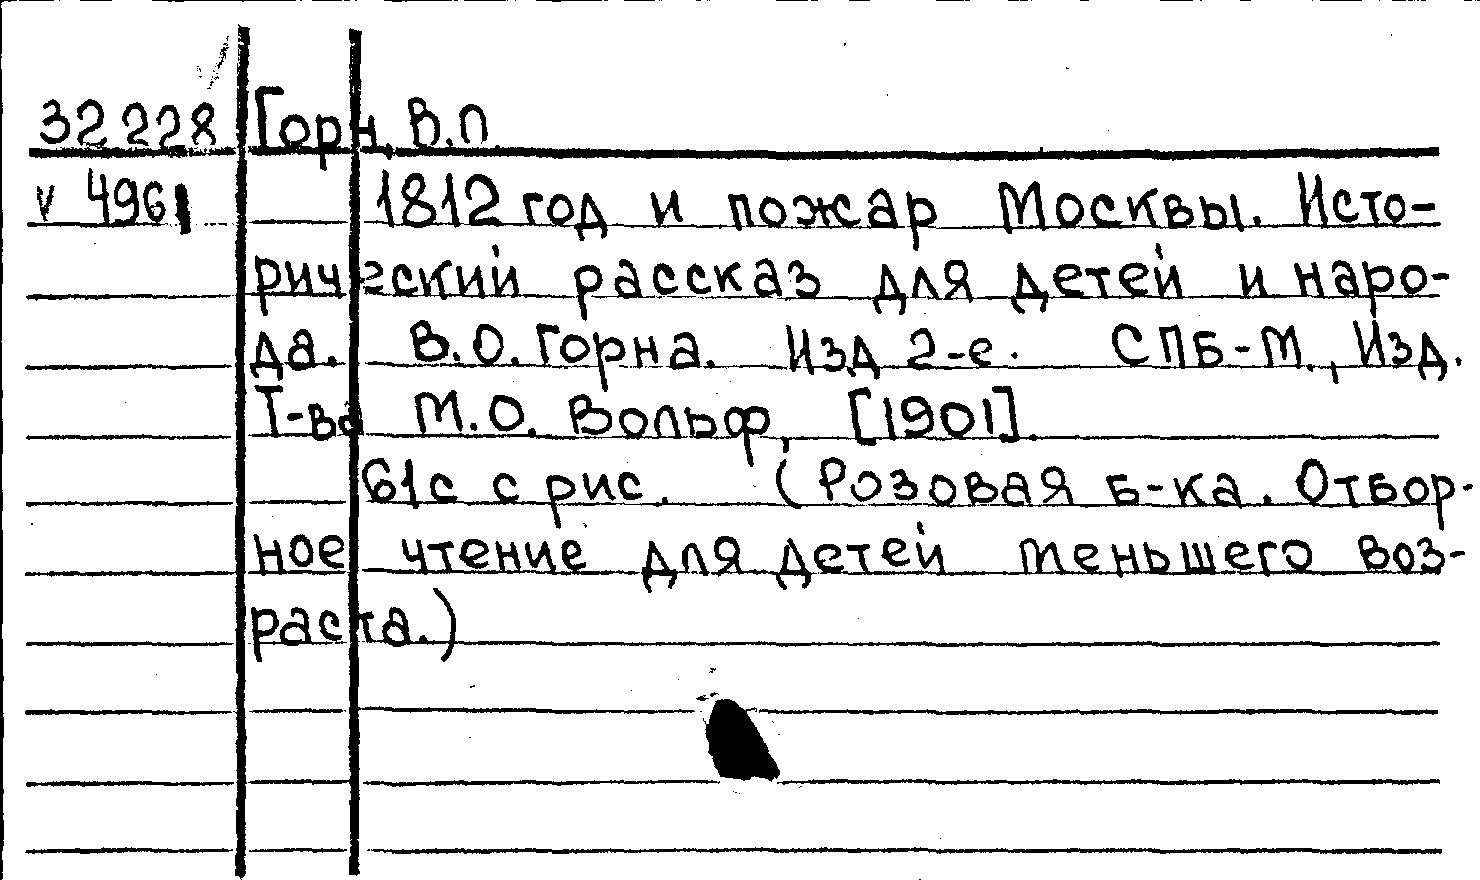 32228 Горн, В.О.
v 4961 1812 год и пожар Москвы. Исто-
рический рассказ для детей и наро-
да. В.О. Горна. Изд 2-е. СПБ-М., Изд.
Т-ва М.О. Вольф, [1901].
61с с рис. (Розовая б-ка. Отбор-
ное чтение для детей меньшего воз-
раста.)